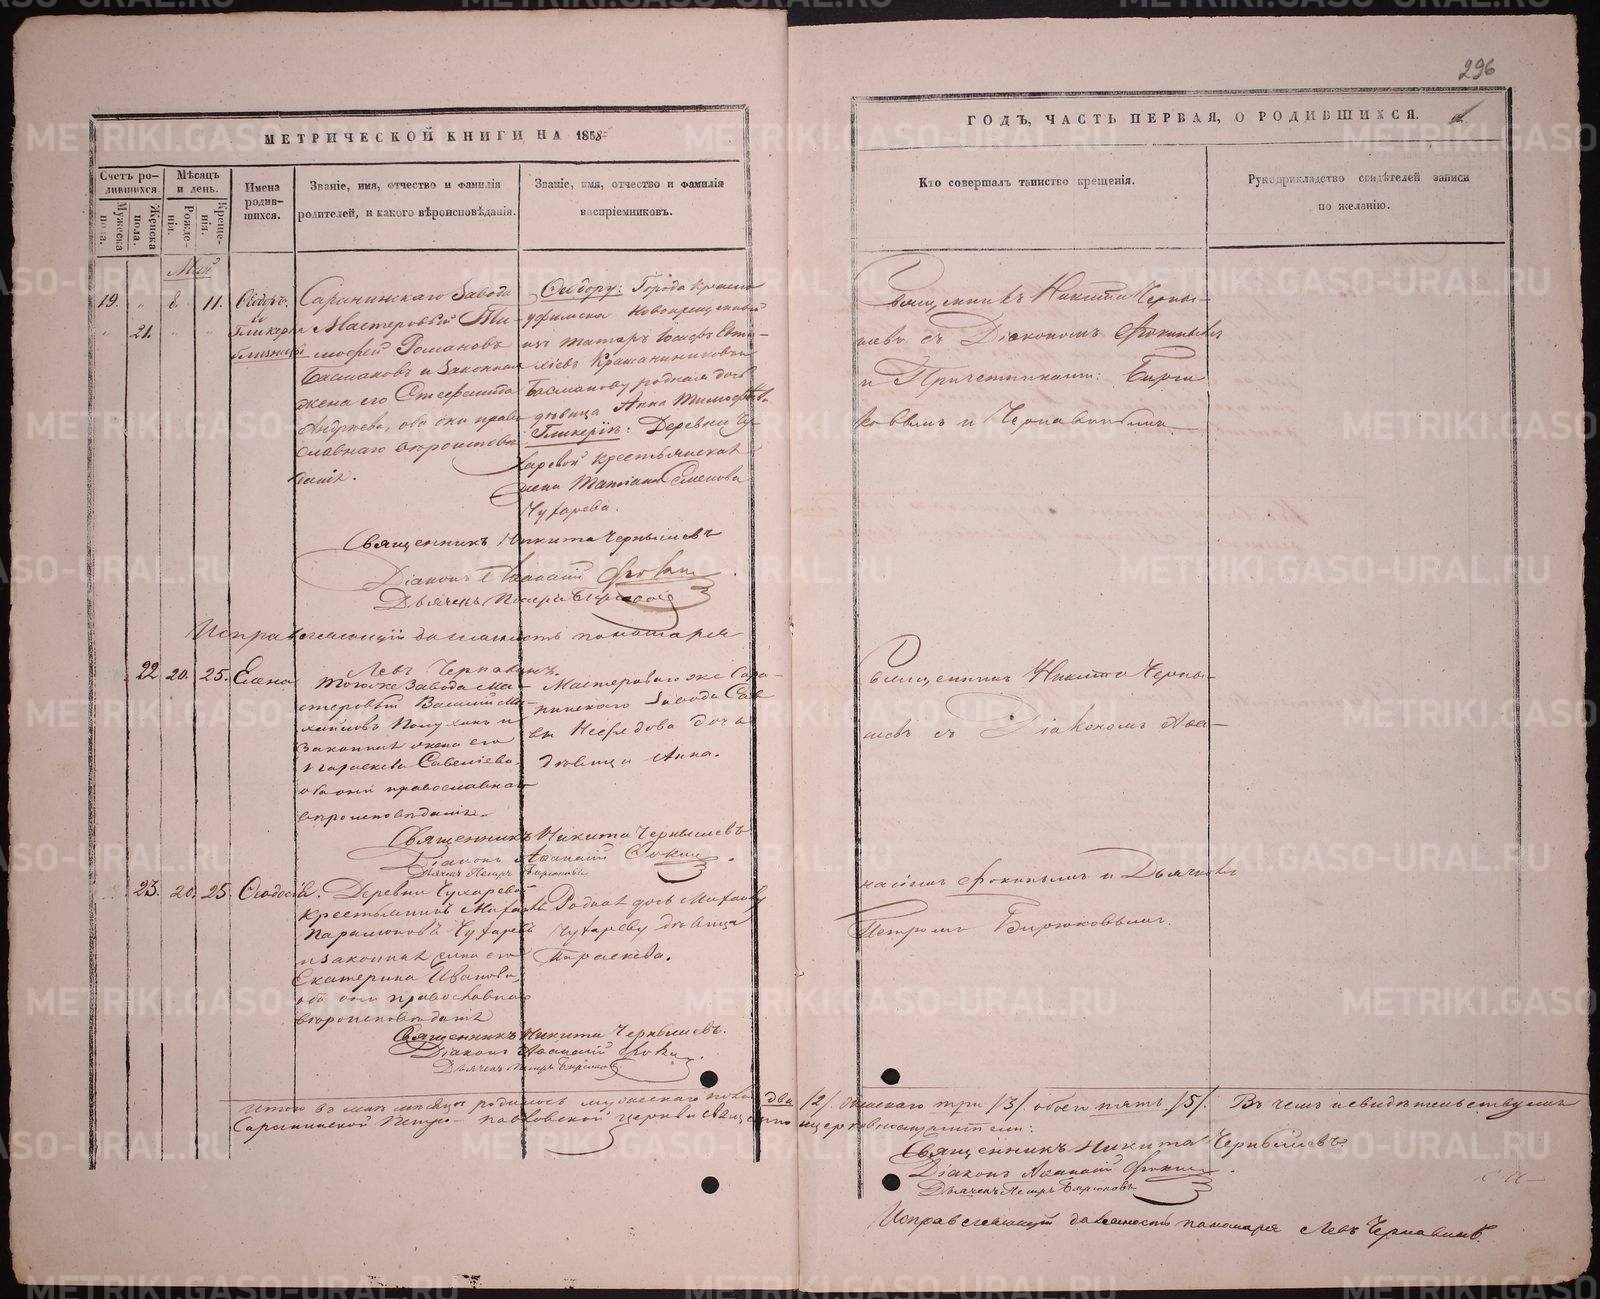 296
МЕТРИЧЕСКОЙ КНИГИ НА 1858
ГОДЪ, ЧАСТЬ ПЕРВАЯ, О РОДИВШИХСЯ.
Счетъ ро-
дившихся.
Мужеска
пола.
Женска
пола.
Мѣсяцъ
и день.
Рожде-
нія.
Креще-
нія.
Имена
родив-
шихся.
Званіе, имя, отчество и фамилія
родителей, и какого вѣроисповѣданія.
Званіе, имя, отчество и фамилія
воспріемниковъ.
Кто совершалъ таинство крещенія.
Рукоприкладство свидѣтелей записи
по желанію.
Май
19. " 8 11.
" 21. " "
Ѳеодоръ
и
Гликерія
близнецы
Саранинскаго Завода
Мастеровый Ти-
мофей Романовъ
Басмановъ и Законная
жена его Стефанида
Андреева, оба они право
славнаго вѣроисповѣ
данія.
Ѳеодору: Города Красно
уфимска Новокрещенный
изъ татаръ
Басманову родная дочь
дѣвица Анна Тимофѣева
Гликеріи: Деревни Чу-
харевой крестьянская
жена Татіана Семенова
Чухарева.
Священникъ Никита Черны-
шевъ съ Діакономъ Фокинымъ
и Причетниками: Бирю
ковымъ и Чернавинымъ.
Священникъ Никита Чернышевъ
Діаконъ Аѳанасій Фокинъ.
Дьячекъ Петръ Бирюковъ
Исправляющій должность пономаря
Левъ Чернавинъ.
22 20. 25. Елена
Тогоже Завода Ма-
стеровый Василій Ми-
хайловъ и
Законная жена его
Параскева Савеліева,
оба они православнаго
вѣроисповѣданія.
Мастероваго же Сара-
нинскаго Завода Сав
вы дочь
дѣвица Анна.
Священникъ Никита Черны-
шевъ съ Діакономъ Аѳа-
Священникъ Никита Чернышевъ
Діаконъ Аѳанасій Фокинъ.
Дьячекъ Петръ Бирюковъ
23. 20. 25. Ѳеодосія.
Деревни Чухаревой
крестьянинъ Михаилъ
Парамоновъ Чухаревъ
и законная жена его
Екатерина Иванова,
оба они православнаго
вѣроисповѣданія
Родная дочь Михаилу
Чухареву дѣвица
Параскева.
насіемъ Фокинымъ и Дьячкомъ
Петромъ Бирюковымъ.
Священникъ Никита Чернышевъ.
Діаконъ Аѳанасій Фокинъ.
Дьячекъ Петръ Бирюковъ
Итого въ маѣ мѣсяцѣ родилось мужескаго пола два /2/ женскаго три /3/ обоего пять /5/. Въ чемъ и свидѣтельствуемъ
Саранинской Петро-Павловской церкви Священно и церковнослужители:
Священникъ Никита Чернышевъ
Діаконъ Аѳанасій Фокинъ.
Дьячекъ Петръ Бирюковъ
Исправляющій должность пономаря Левъ Чернавинъ.
METRIKI.GASO-URAL.RU